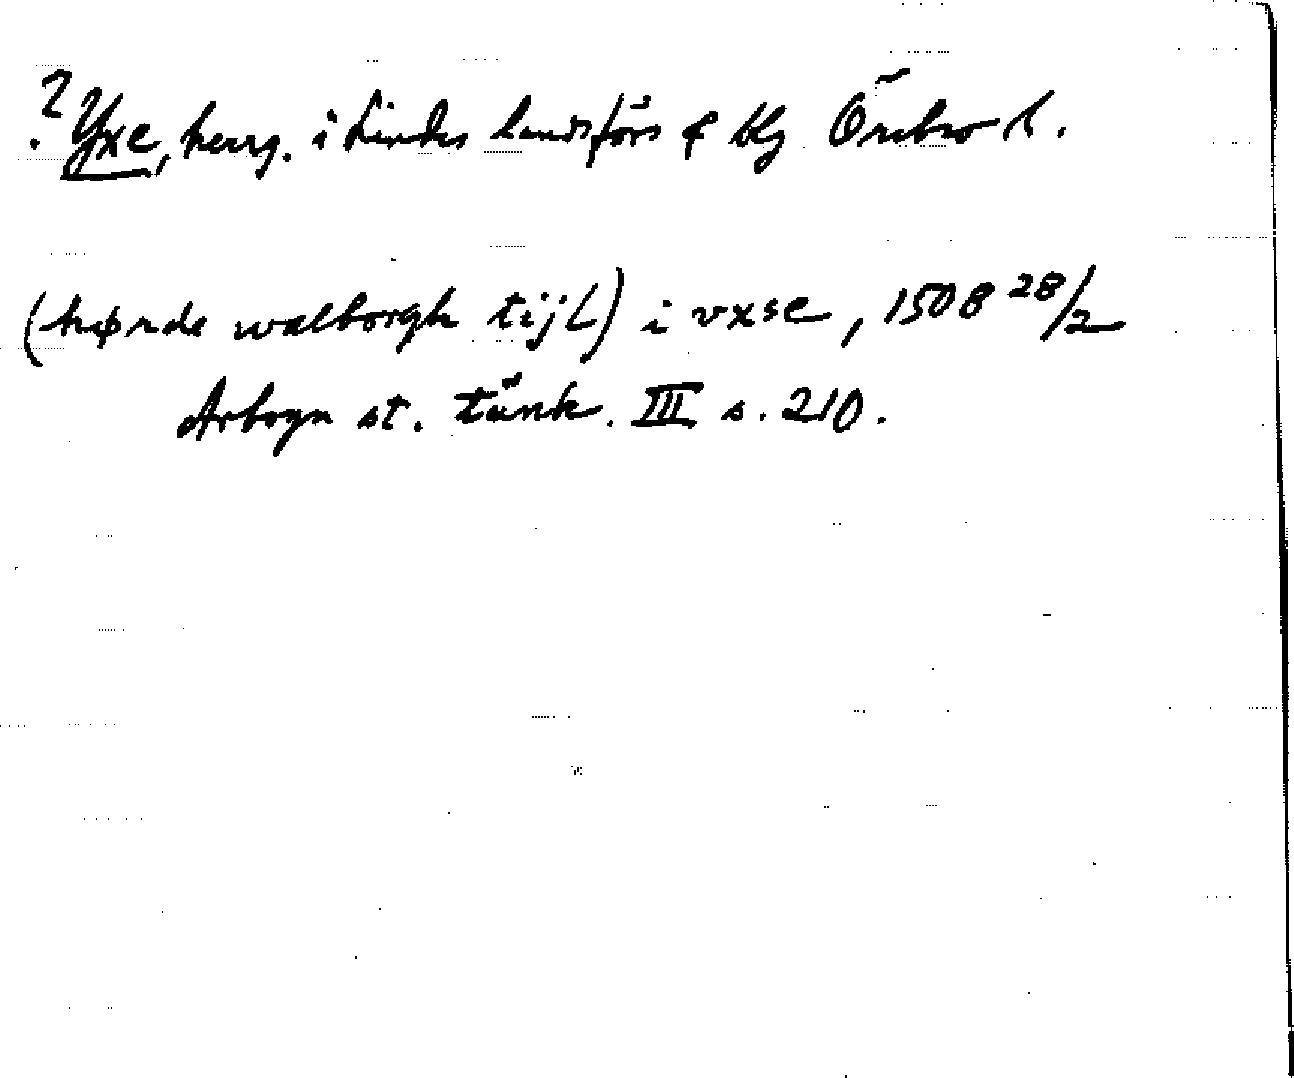 ? Yxe, herrg. i Lindes landsförs o tlg Örebro l.
(hørde walborgh tijl) i vxse, 1508 28/2
Arboga st. tänk. III s. 210.